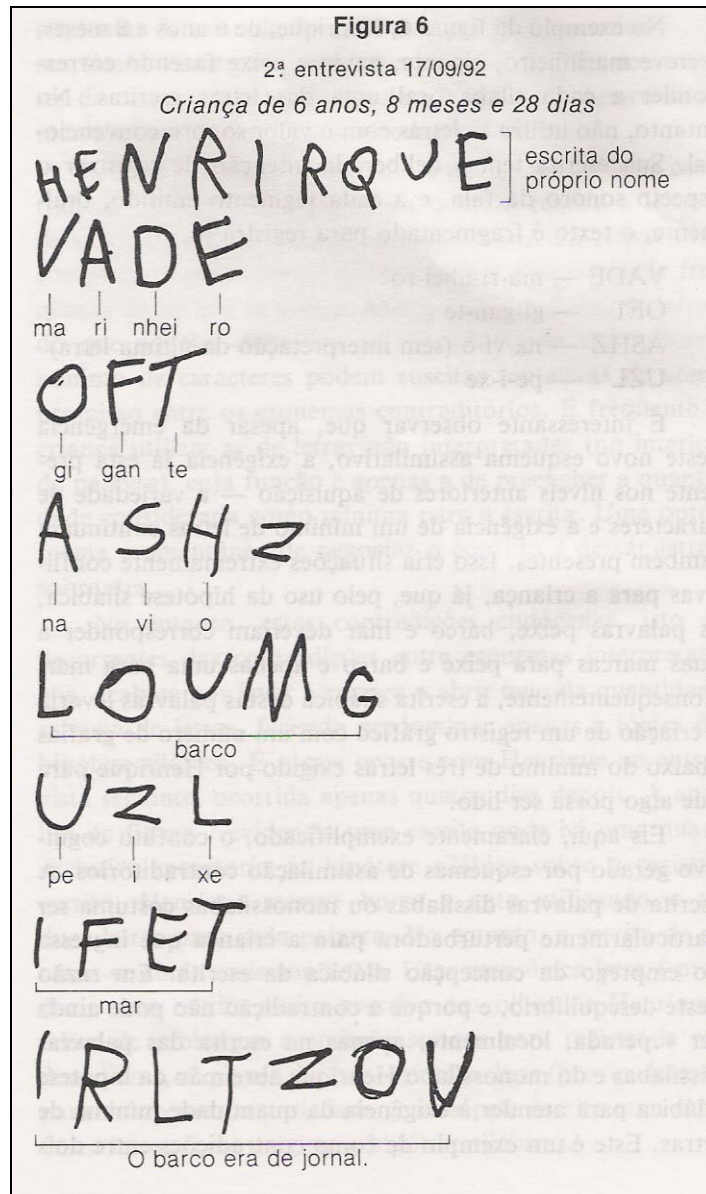 Figura 6
2.ª entrevista 17/09/92
Criança de 6 anos, 8 meses e 28 dias
HENRIRQUE
escrita do
próprio nome
VADE
ma ri nhei ro
OFT
gi gan te
A SHZ
na vi o
LOUMG
barco
UZL
pe i xe
IFET
mar
IRLTZOV
O barco era de jornal.